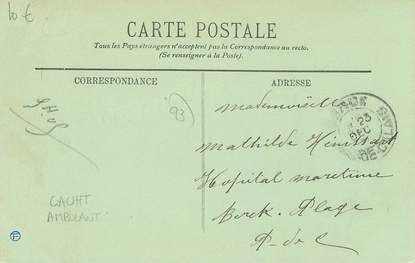 10 €
CARTE POSTALE
Tous les Pays étrangers n'acceptent pas la Correspondance au recto.
(Se renseigner à la Poste).
CORRESPONDANCE
ADRESSE
93
Mademoiselle
Mathilde
Hopital maritime
Berck-Plage
P-de C
23
DEC
CACHT
AMBULANT.
F